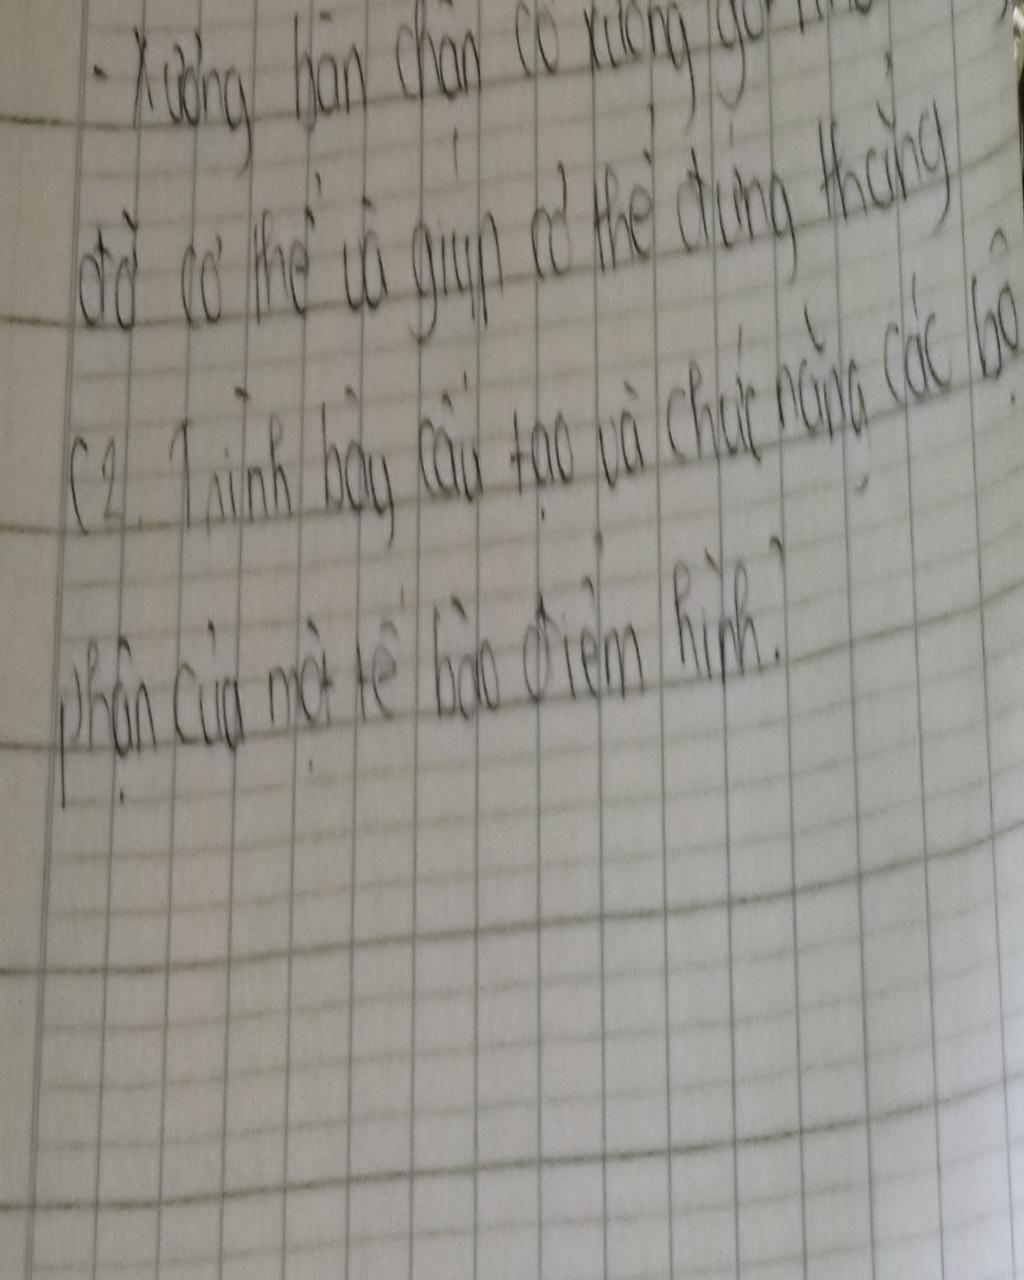 - Xương bàn chân có xương gót
đỡ cơ thể và giúp cơ thể đứng thẳng
C2. Trình bày cấu tạo và chức năng các bộ
phận của một tế bào điểm hình?